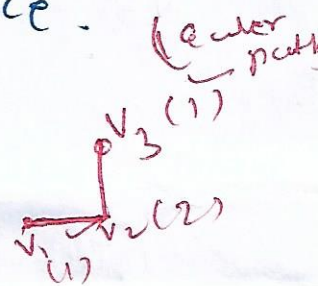 ce.
(Euler
path
V3 (1)
V2 (2)
V1 (1)